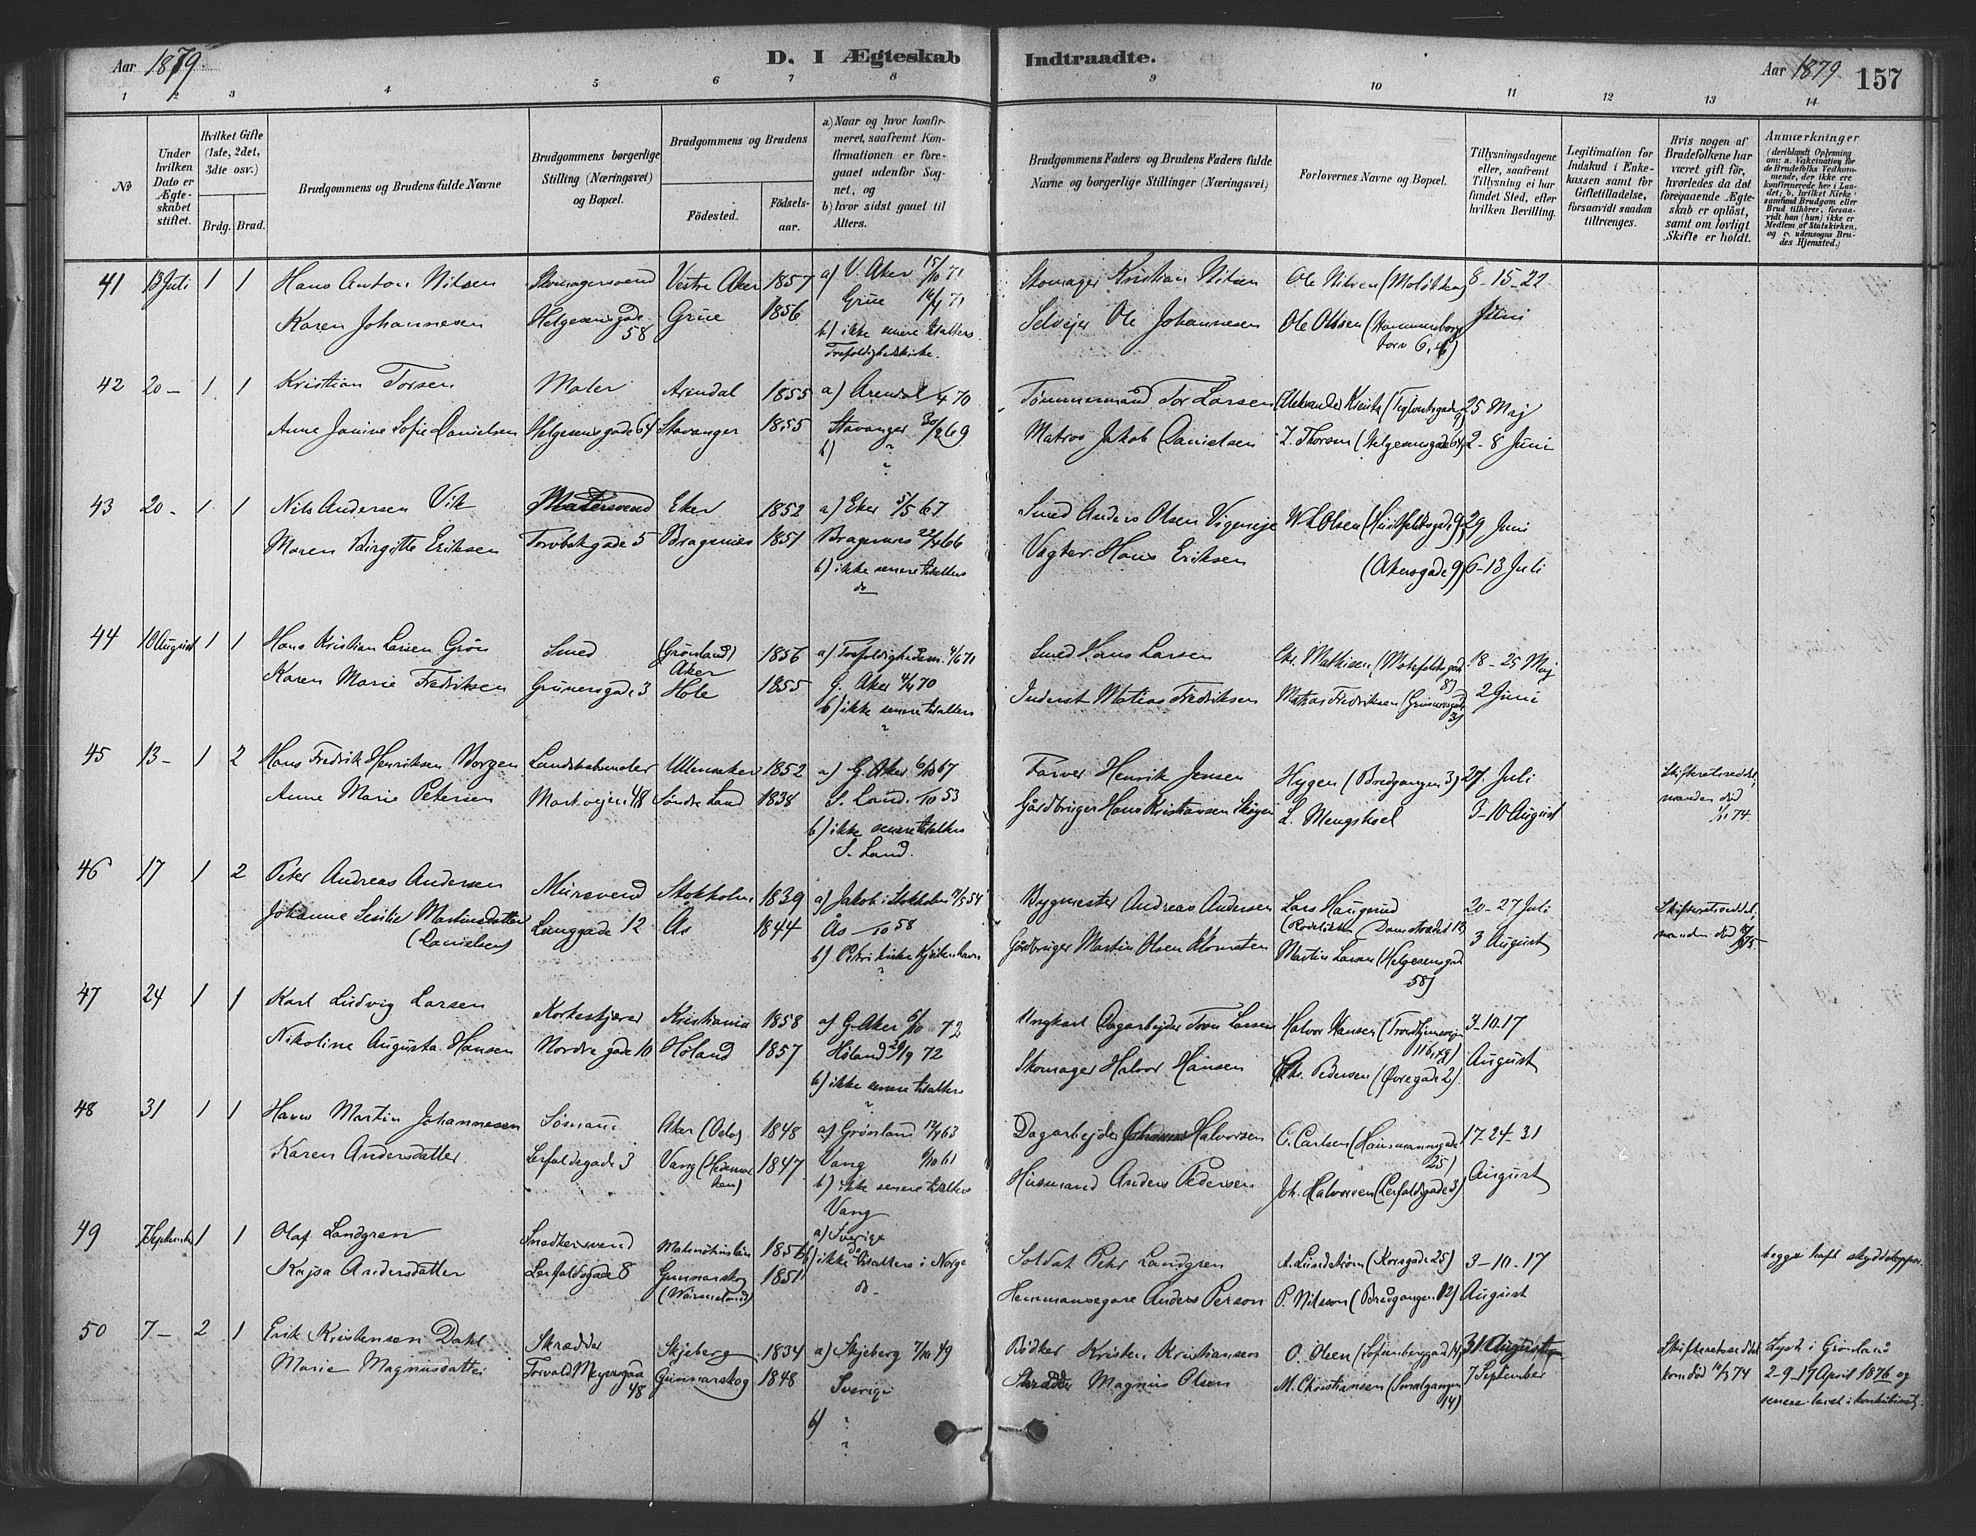 Aar 1879. D. I Ægteskab Indtraadte. Aar 1879 157
1 2 3 4 5 6 7 8 9 10 11 12 13 14
No
Under hvilken Dato er Ægteskabet stiftet.
Hvilket Gifte (1ste, 2det, 3die osv.)
Brdg. Brud.
Brudgommens og Brudens fulde Navne
Brudgommens borgerlige Stilling (Næringsvei) og Bopæl.
Brudgommens og Brudens
Fødested. Fødselsaar.
a) Naar og hvor konfirmeret, saafremt Konfirmationen er foregaaet udenfor Sognet, og
b) hvor sidst gaaet til Alters.
Brudgommens Faders og Brudens Faders fulde Navne og borgerlige Stillinger (Næringsvei)
Forlovernes Navne og Bopæl.
Tillysningsdagene eller, saafremt Tillysning ei har fundet Sted, efter hvilken Bevilling.
Legitimation for Indskud i Enkekassen samt for Giftetilladelse, forsaavidt saadan tiltrænges.
Hvis nogen af Brudefolkene har været gift før, hvorledes da det foregaaende Ægteskab er opløst, samt om lovligt Skifte er holdt.
Anmærkninger (deriblandt Oplysning om: a. Vakcination for de Brudefolks Vedkommende, der ikke ere konfirmerede her i Landet; b. hvilket Kirkesamfund Brudgom eller Brud tilhører, forsaavidt han (hun) ikke er Medlem af Statskirken, og c. udensogns Brudes Hjemsted.)
41 13 Juli 1 1 Hans Anton Nilsen Skomagersvend Vestre Aker 1857 a) V. Aker 15/10 71 Skomager Kristian Nilsen Ole Nilsen 8-15-22
Karen Johannesen Helgesensgade 58 Grue 1856 Grue 71 Selvejer Ole Johannesen Ole Olssen (Hammersborg torv 6, 6) Juni
b) ikke senere tilalters
Trefoldighedskirke.
42 20 - 1 1 Kristian Torsen Maler Arendal 1855 a) Arendal /4 70 Tømmermand Tor Larsen 25 Maj
Anne Janine Sofie Danielsen Helgesensgade 64 Stavanger 1855 Stavanger 69 Matros Jakob Danielsen T. Thorsen (Helgesensgade 64) 2-8 Juni
b) "
43 20 - 1 1 Nils Andersen Vik Eker 1852 a) Eker 5/5 67 Smed Anders Olsen Olsen (Huitfeldtsgade 29 Juni
Maren Birgitte Eriksen Torvbakgade 5 Bragernes 1851 Bragernes 66 Vægter Hans Eriksen (Akersgade 9) 6-13 Juli
b) ikke senere tilalters
do
44 10 August 1 1 Hans Kristian Larsen Grøn Smed (Grønland) Aker 1856 a) Trefoldighedsm. 71 Smed Hans Larsen Chr. Mathisen 8) 18-25 Maj
Karen Marie Fredriksen Grünersgade 3 Hole 1855 G. Aker 4/4 70 Inderst Matias Fredriksen Matias Fredriksen (Grünersgade 3) 2 Juni
b) ikke senere tilalters
45 13 - 1 2 Hans Fredrik Henriksen Borgen Landsbahandler Ullensaker 1852 a) G. Aker 6/10 67 Farver Henrik Jensen Hygen (Bredgangen 3) 27. Juli Skifteretsseddel,
Anne Marie Petersen Mart.vejen 48 Søndre Land 1838 S. Land. /10 53 Gårdbruger Hans Kristiansen Skøyen L. Mengshoel 3-10 August manden død 74.
b) ikke senere tilalters
S. Land.
46 17 1 2 Peter Andreas Andersen Mursvend Stokholm 1839 a) Jakob i Stokholm 54 Bygmester Andreas Andersen Lars Haugerud 20-27 Juli Skifteretsseddel,
Johanne Martinsdatter Langgade 12 Ås 1844 Ås /10 58 (Damstrædet 13) 3 August manden død 75
(Danielsen) b) Petri kirke Kjøbenhavn Gårdbruger Martin Olsen Martin Larsen (Helgesensgade 58)
47 24 1 1 Karl Ludvig Larsen Korkeskjærer Kristiania 1858 a) G. Aker 5/10 72 Ungkarl Dagarbejder Lassen Halvor Hansen (Trondhjemsvejen 3-10-17
Nikoline Augusta Hansen Nordre gade 10 Høland 1857 Høland 29/9 72 Skomager Halvor Hansen Chr. Pedersen (Øvregade 2). August
b) ikke senere tilalters
48 31 1 1 Hans Martin Johannesen Sømand Aker (Oslo) 1848 a) Grønland 63 Dagarbejder Johannes Halvorsen O. Carlsen (Hausmannsgade 25) 17-24-31
Karen Andersdatter Lerfaldsgade 3 Vang (Hedemarken) 1847 Vang /10 61 Husmand Anders Pedersen Joh. Halvorsen (Lerfaldsgade 3) August
b) ikke senere tilalters
Vang
49 7 September 1 1 Olaf Landgren Snedkersvend Malmöhuslän a) Sverige Soldat Pehr Landgren A. Lundstrøm (Korsgade 25) 3-10-17 begge haft skyddskopper
Kajsa Andersdatter Lerfaldsgade 8 Gunnarskog (Wärmeland) 1851 b) ikke tilalters i Norge do. Hemmansegare Anders Person P. Nilsson (Bredgangen 12) August
50 7 - 2 1 Erik Kristensen Dahl Skrædder Skjeberg 1834 a) Skjeberg 7/10 49 Bødker Kristen Kristiansen O. Olsen (Sofienberggade 14) 31 August Skifteretsseddel Lyst i Grønland
Marie Magnusdatter Torvald Meyersgade 48 Gunnarskog 1848 Sverige Skrædder Magnus Olsen M. Christiansen (Smalgangen 14) 7 September kon død 74 2-9-17 April 1876 og
b) " senere levet i konkubinat.